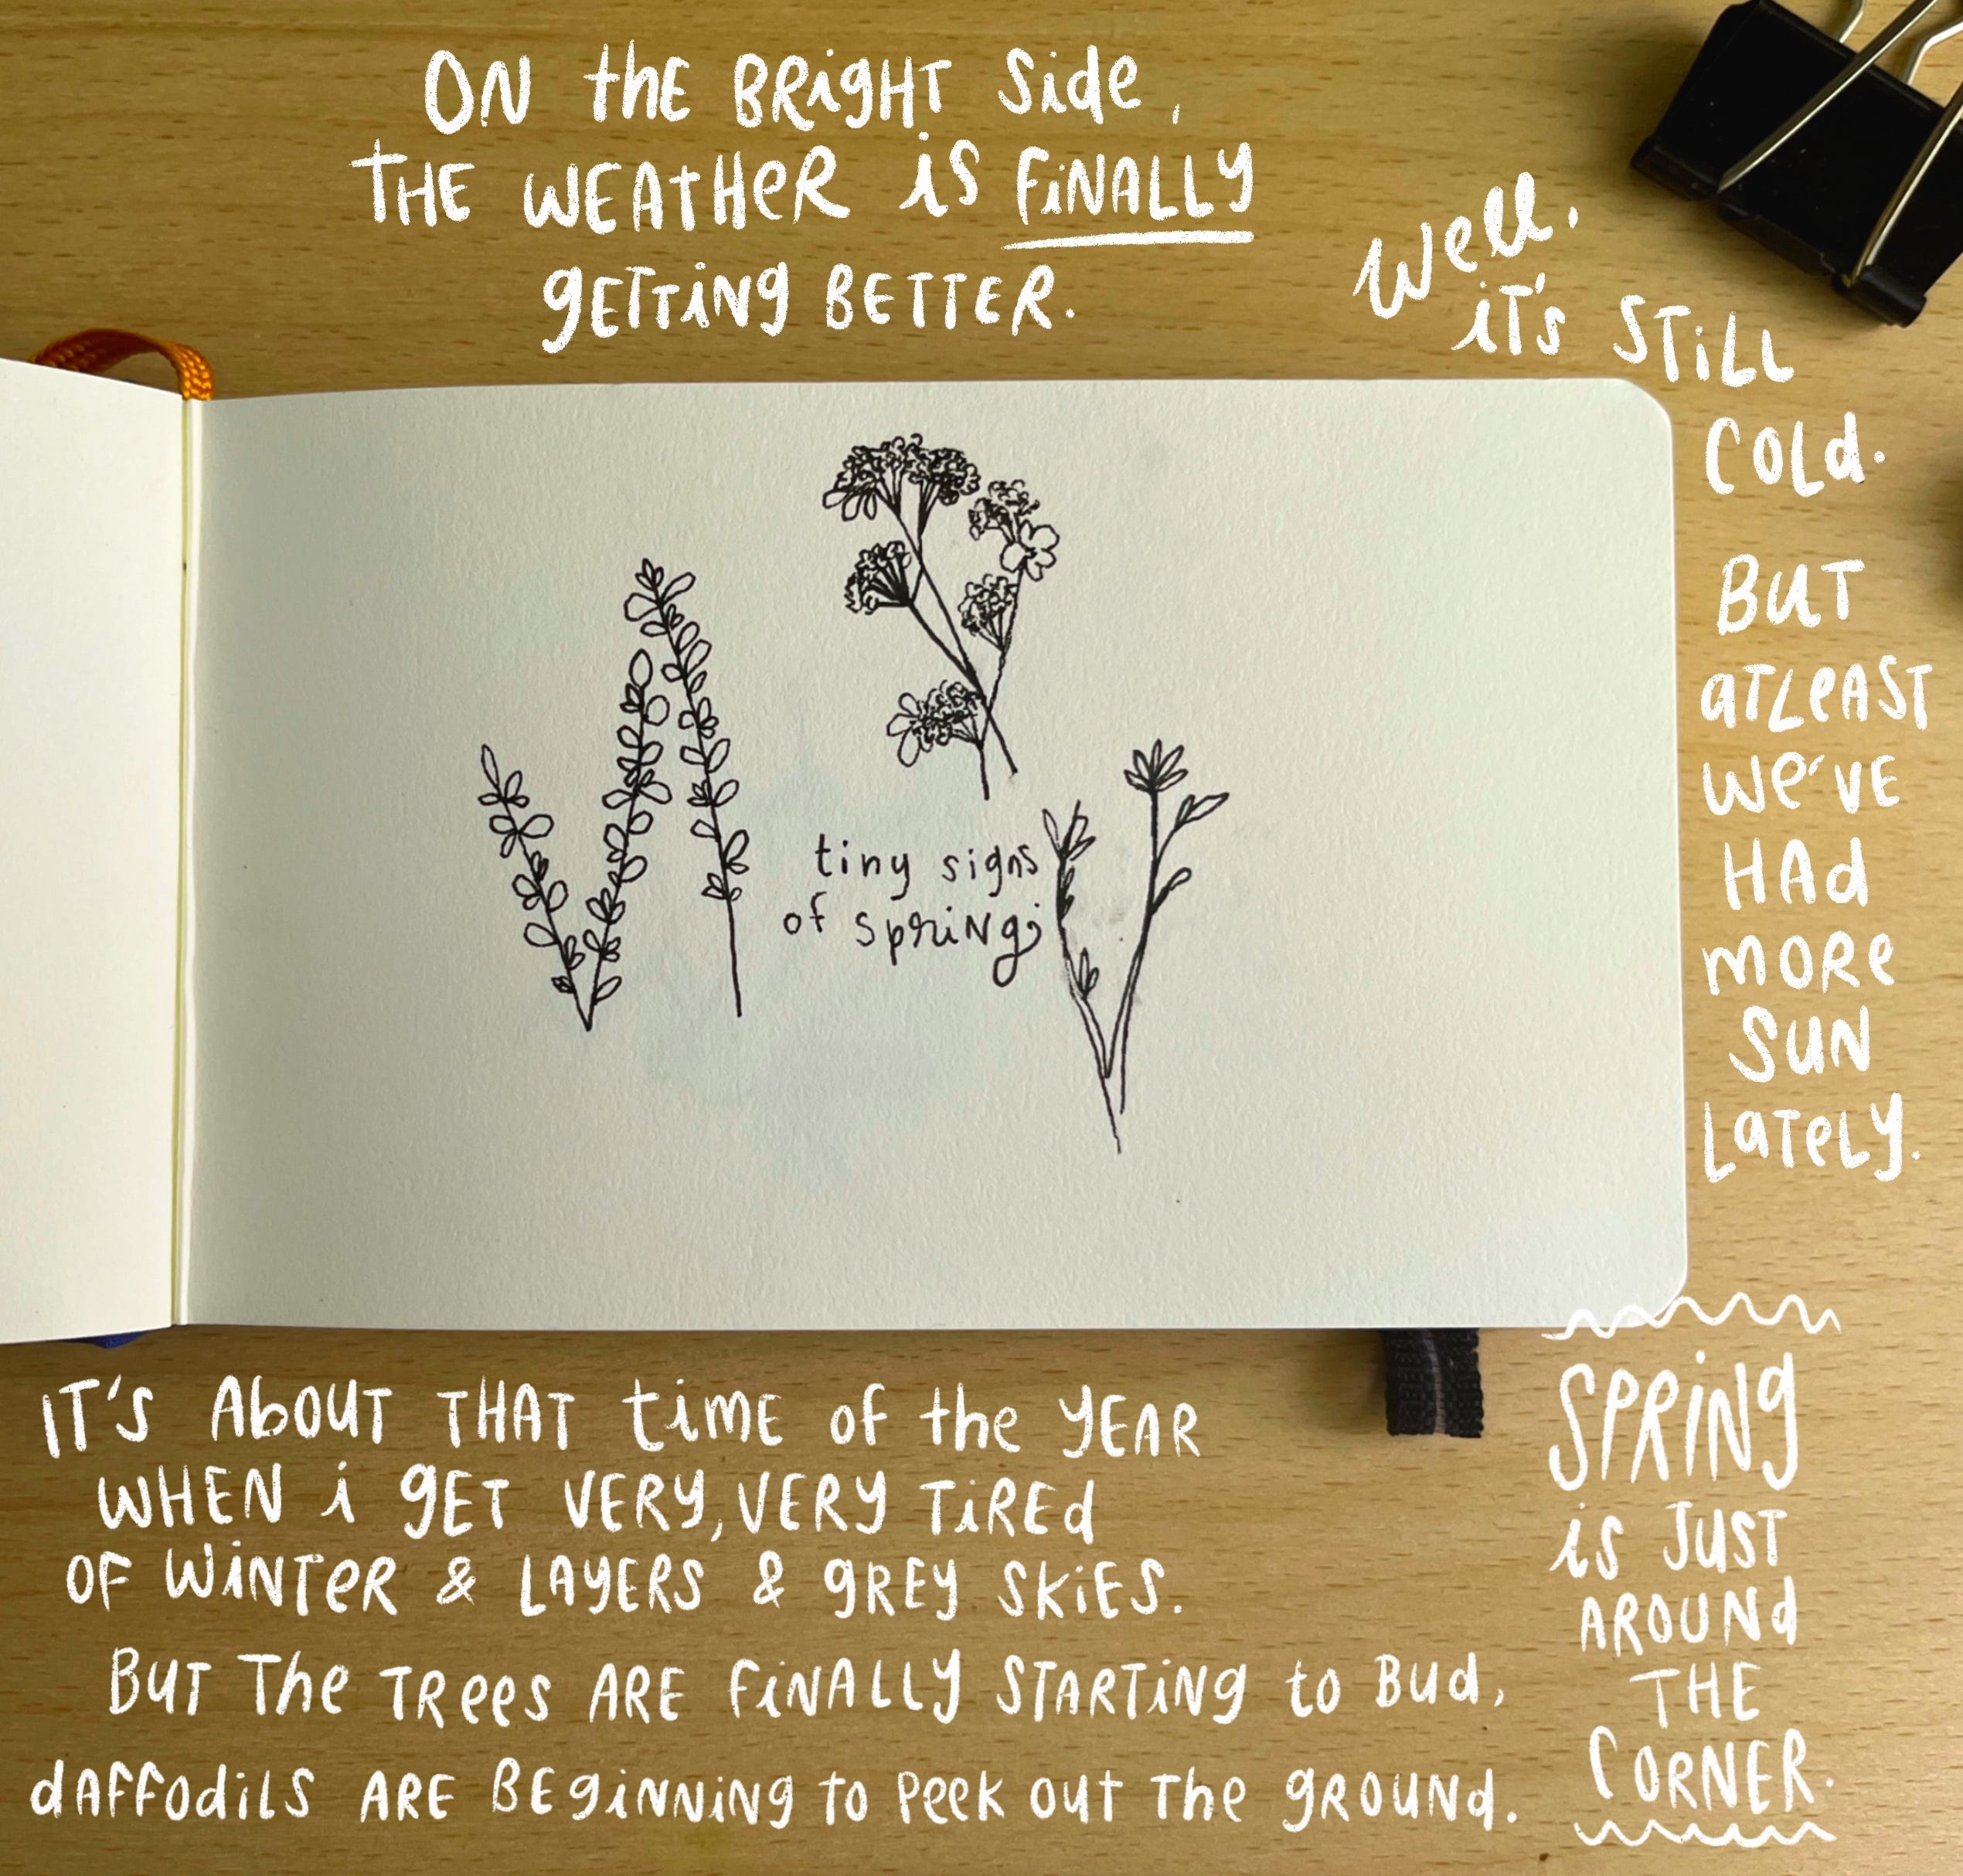 ON the BRigHT Side,
THE WEATHeR iS FiNALLY
gETTiNg BETTER.
Well.
iT'S STiLL
COLd.
BUT
aTLeAST
We'VE
HAd
MORe
SUN
LaTeLy.
tiny signs
of spriNg;
IT'S AbOUT THAT timE OF the YEAR
WHEN i gET VERY, VERY TiREd
OF WiNTeR & LAYERS & gREY SKiES.
BUT The TRees ARE FiNALLY STARTiNg to BUd,
dAFFOdiLS ARE BEgiNNiNg TO PeeK OUT The gROUNd.
SPRiNg
iS JUST
AROUNd
THE
CORNER.